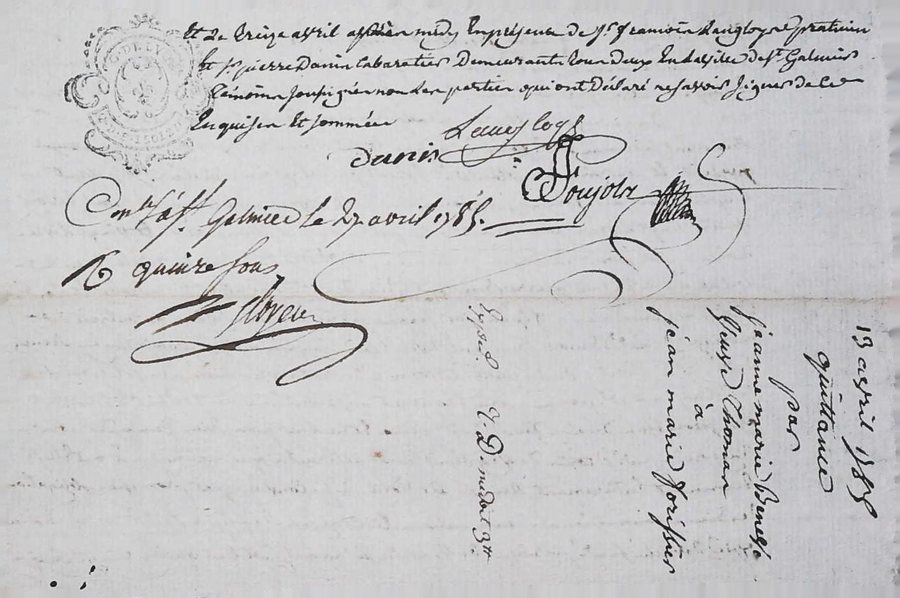 et le treize avril apres midy En presence de Sr. francois Langlois praticien
Et pierre Danis Cabaratier Demeurants tous deux En la ville de St. Galmier
temoins soussignes non les parties qui ont Déclaré ne savoir signer de ce
Enquises Et sommées
Langlois
danis
Poujols
Conlé à St. Galmier le 27 avril 1785.
R quinze sous
13 avril 1785
quittance
par
jeanne marie
veuve thomas
à
jean marie forissier
Expedié